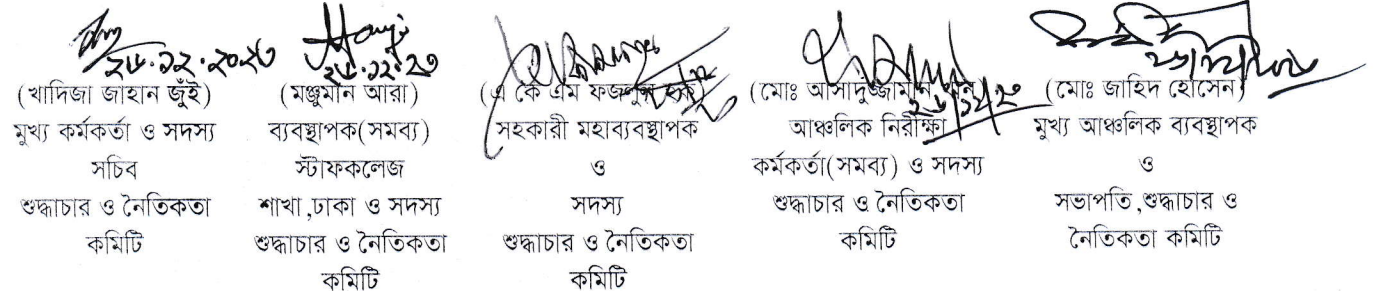 ২৮.১২.২০২৩
২৮.১২.২৩
(খাদিজা জাহান জুঁই)
মুখ্য কর্মকর্তা ও সদস্য
সচিব
শুদ্ধাচার ও নৈতিকতা
কমিটি
(মঞ্জুমান আরা)
ব্যবস্থাপক(সমব্য)
স্টাফকলেজ
শাখা,ঢাকা ও সদস্য
শুদ্ধাচার ও নৈতিকতা
কমিটি
(এ কে এম ফজলুল হক)
সহকারী মহাব্যবস্থাপক
ও
সদস্য
শুদ্ধাচার ও নৈতিকতা
কমিটি
(মোঃ আসাদুজ্জামান খান)
আঞ্চলিক নিরীক্ষা
কর্মকর্তা(সমব্য) ও সদস্য
শুদ্ধাচার ও নৈতিকতা
কমিটি
(মোঃ জাহিদ হোসেন)
মুখ্য আঞ্চলিক ব্যবস্থাপক
ও
সভাপতি,শুদ্ধাচার ও
নৈতিকতা কমিটি